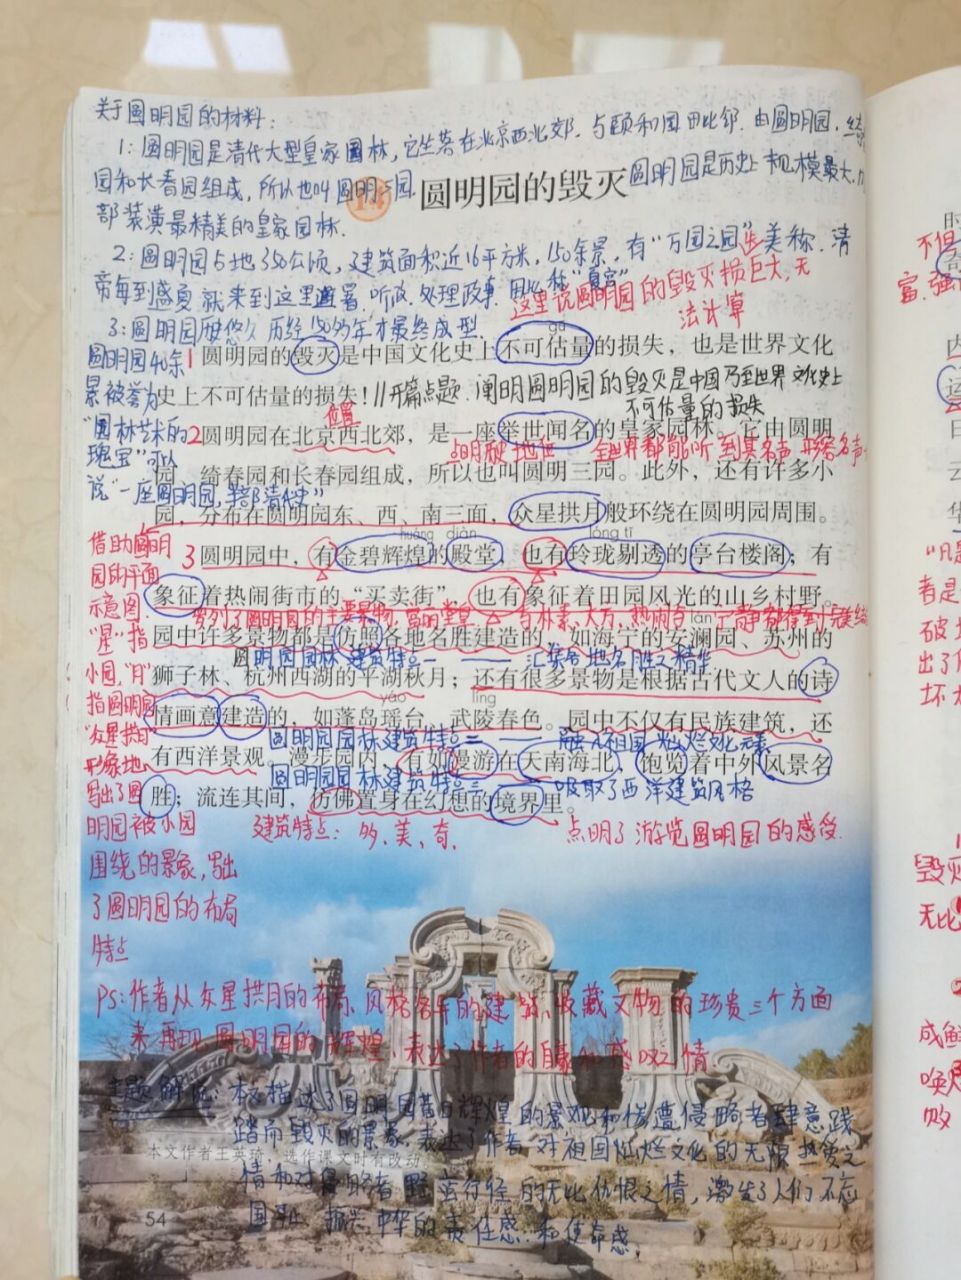 关于圆明园的材料：
1：圆明园是清代大型皇家园林，它坐落在北京西北郊，与颐和园毗邻，由圆明园，绮
园和长春园组成，所以也叫圆明三园。
圆明园是历史上规模最大，
部装潢最精美的皇家园林。
14 圆明园的毁灭
2：圆明园占地350公顷，建筑面积近16平方米，150余景，有“万园之园”美称．清
帝每到盛夏就来到这里避署、听政、处理政事．因此称“夏宫”
这里说圆明园的毁灭损巨大，无
法计算
3：圆明园历经150多年才最终成型．
gū
1 圆明园的毁灭是中国文化史上不可估量的损失，也是世界文化
史上不可估量的损失！//开篇点题．阐明圆明园的毁灭是中国乃至世界文化史上
不可估量的损失
圆明园40余
景被誉为
“园林艺术的
瑰宝”可以
说“一座圆明园，半部清代史”
位置
2 圆明园在北京西北郊，是一座举世闻名的皇家园林。它由圆明
全世界都能听到其名声
园、绮春园和长春园组成，所以也叫圆明三园。此外，还有许多小
园，分布在圆明园东、西、南三面，众星拱月般环绕在圆明园周围。
huáng diàn lóng tī
3 圆明园中，有金碧辉煌的殿堂，也有玲珑剔透的亭台楼阁；有
象征着热闹街市的“买卖街”，也有象征着田园风光的山乡村野。
lán
园中许多景物都是仿照各地名胜建造的，如海宁的安澜园、苏州的
圆明园园林建筑特点一——汇聚各地名胜之精华
狮子林、杭州西湖的平湖秋月；还有很多景物是根据古代文人的诗
yáo líng
情画意建造的，如蓬岛瑶台、武陵春色。园中不仅有民族建筑，还
圆明园园林建筑特点二——融入祖国灿烂文化元素
有西洋景观。漫步园内，有如漫游在天南海北，饱览着中外风景名
圆明园园林建筑特点三——吸取了西洋建筑风格
胜；流连其间，仿佛置身在幻想的境界里。
借助圆明
园的平面
示意图．
“星”指
小园，“月”
指圆明园
“众星拱月”
形象地
写出了圆
明园被小园
围绕的景象，写出
了圆明园的布局
特点
建筑特点：多、美、奇．
点明了游览圆明园的感受．
PS：作者从众星拱月的布局、风格各异的建筑、收藏文物的珍贵三个方面
来再现圆明园的辉煌，表达了作者的自豪和感叹之情
主题解说：本文描述了圆明园昔日辉煌的景观和惨遭侵略者肆意践
踏而毁灭的景象，表达了作者对祖国灿烂文化的无限热爱之
情和对侵略者野蛮行径的无比仇恨之情，激发了人们不忘
国耻，振兴中华的责任感和使命感．
本文作者王英琦，选作课文时有改动。
54